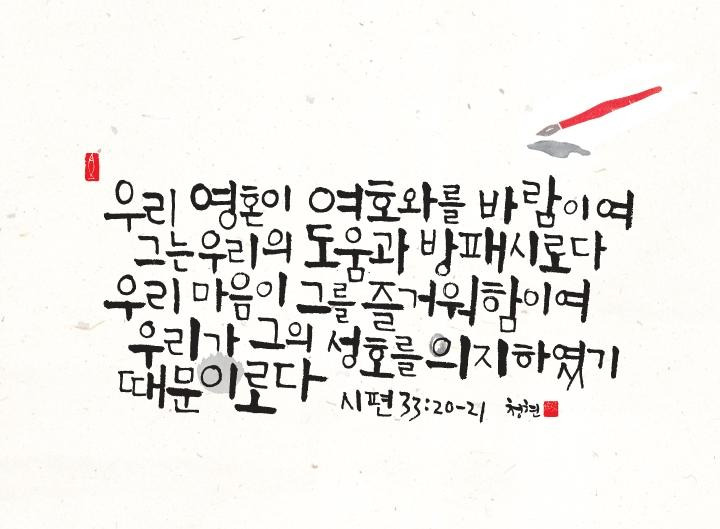 우리 영혼이 여호와를 바람이여
그는 우리의 도움과 방패시로다
우리 마음이 그를 즐거워함이여
우리가 그의 성호를 의지하였기
때문이로다
시편 33:20-21 청현